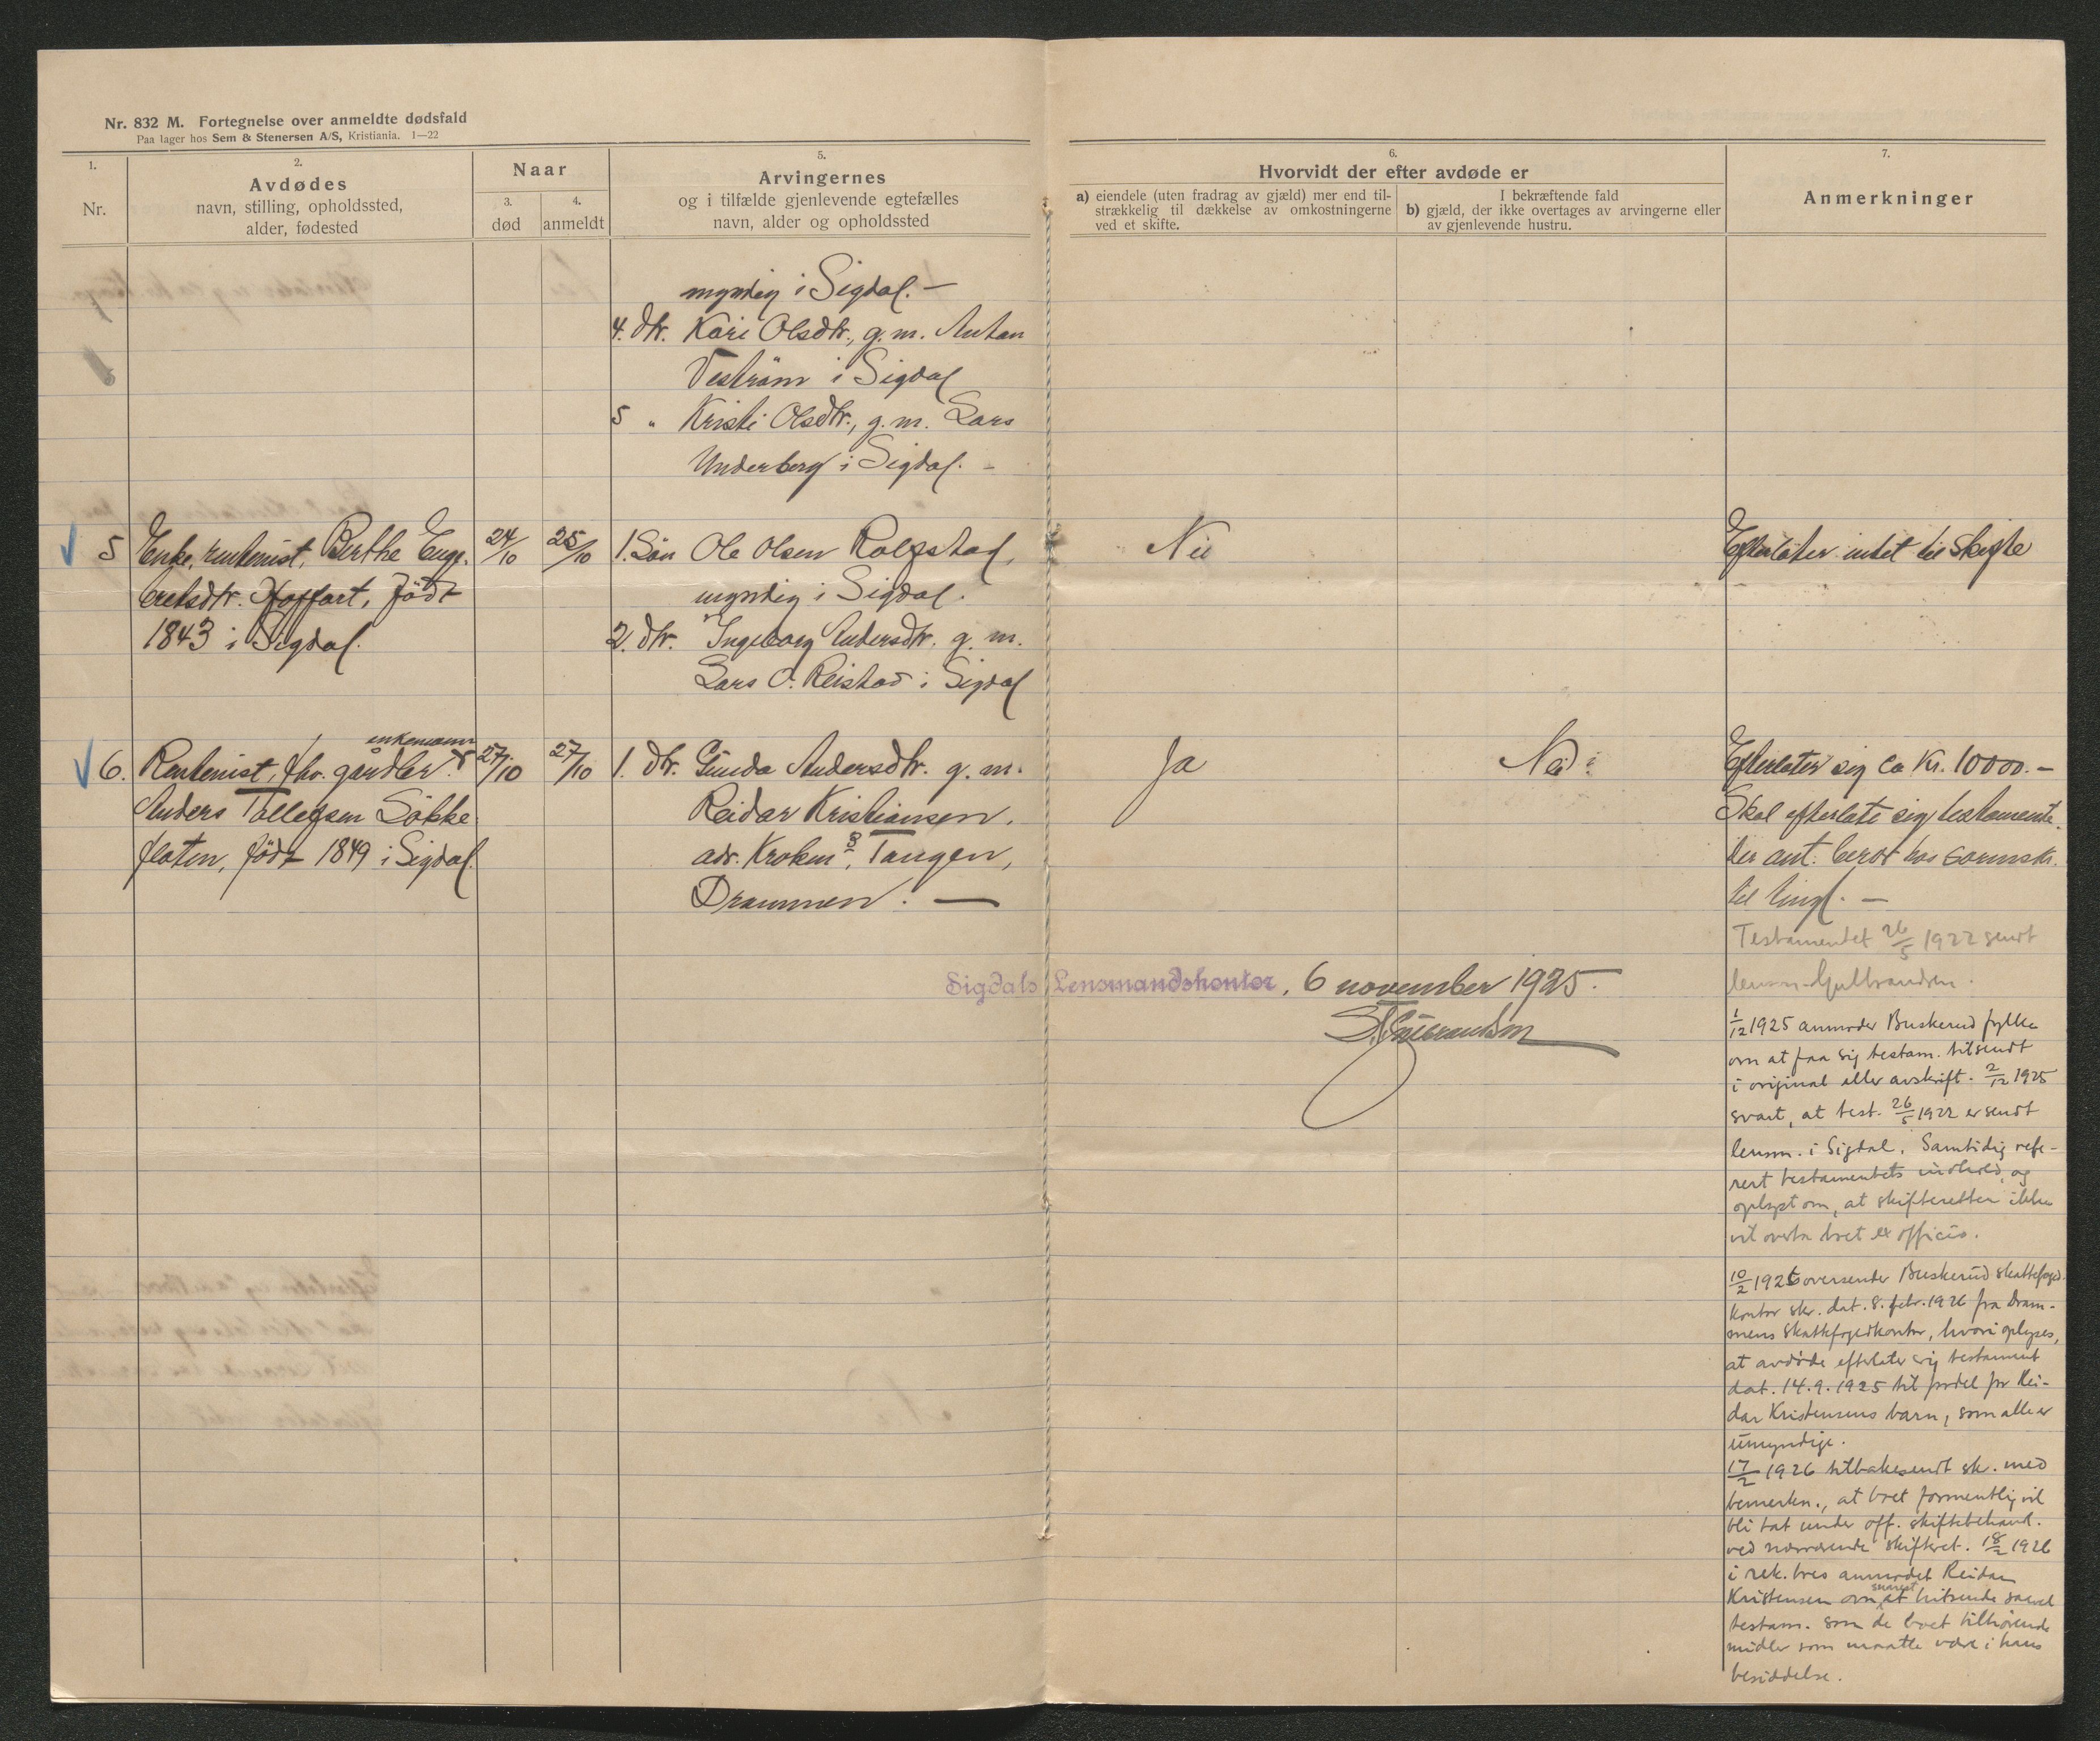 Nr. 832 M. Fortegnelse over anmeldte dødsfald
Paa lager hos Sem & Stenersen A/S, Kristiania. 1—22
1.
Nr.
2.
Avdødes
navn, stilling, opholdssted,
alder, fødested
Naar
3.
død
4.
anmeldt
5.
Arvingernes
og i tilfælde gjenlevende egtefælles
navn, alder og opholdssted
6.
Hvorvidt der efter avdøde er
a) eiendele (uten fradrag av gjæld) mer end til-
strækkelig til dækkelse av omkostningerne
ved et skifte.
I bekræftende fald
b) gjæld, der ikke overtages av arvingerne eller
av gjenlevende hustru.
7.
Anmerkninger
myndig i Sigdal. —
4. dtr. Kari Olsdtr., g. m. Antan
i Sigdal
5 " Kristi Olsdtr., g. m. Lars
Underberg i Sigdal. -
5 Enke, rentenist, Berthe Enge-
bretsdtr. Hoffart, født
1843 i Sigdal.
24/10
25/10
1. Søn Ole Olsen Rolfstad,
myndig i Sigdal.
2. dtr. Ingeborg Andersdtr. g. m.
Lars O. Reistad i Sigdal
Nei
Efterlater intet til skifte
6. Rentenist, fhv. gårdbr. enkemann
Anders Tollefsen Søkke
flaten, født 1849 i Sigdal.
27/10
27/10
1. dtr. Gunda Andersdtr. g. m.
Reidar Kristiansen.
adr. Kroken 8, Tangen,
Drammen. —
Ja
Nei
Efterlater sig ca kr. 10000.—
Skal efterlate sig testamente.
der ant. beror hos sorenskr.
til tingl. —
Testamentet 26/5 1922 sendt
lensm. Gulbrandsen.
1/12 1925 anmoder Buskerud fylke
om at faa sig testam. tilsendt
i original eller avskrift. 2/12 1925
svart, at test. 26/5 1922 er sendt
lensm. i Sigdal. Samtidig refe-
rert testamentets indhold, og
oplyst om, at skifteretten ikke
vil overta boet ex officio.
10/2 1926 oversender Buskerud skattefoged-
kontor skr. dat. 8. febr. 1926 fra Dram-
mens skattefogedkontor, hvori oplyses,
at avdøde efterlater sig testament
dat. 14.9.1925 til fordel for Rei-
dar Kristensens barn, som alle er
umyndige.
17/2 1926 tilbakesendt sk. med
bemerkn., at boet formentlig vil
bli tat under off. skiftebehand.
ved nærværende skifteret. 18/2 1926
i rek. brev anmodet Reidar
Kristensen om snarest at hitsende saavel
testam. som de boet tilhørende
midler som maatte være i hans
besiddelse.
Sigdals Lensmandskontor, 6 november 1925.